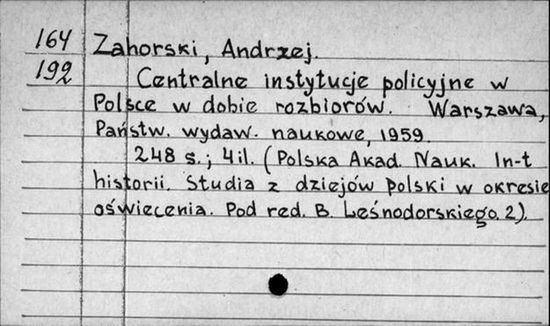 164 Zahorski, Andrzej.
192 Centralne instytucje policyjne w
Polsce w dobie rozbiorów. Warszawa,
Państw. wydaw. naukowe, 1959.
248 s.; 4il. (Polska Akad. Nauk. In-t
historii. Studia z dziejów polski w okresie
oświecenia. Pod red. B. Leśnodorskiego. 2).